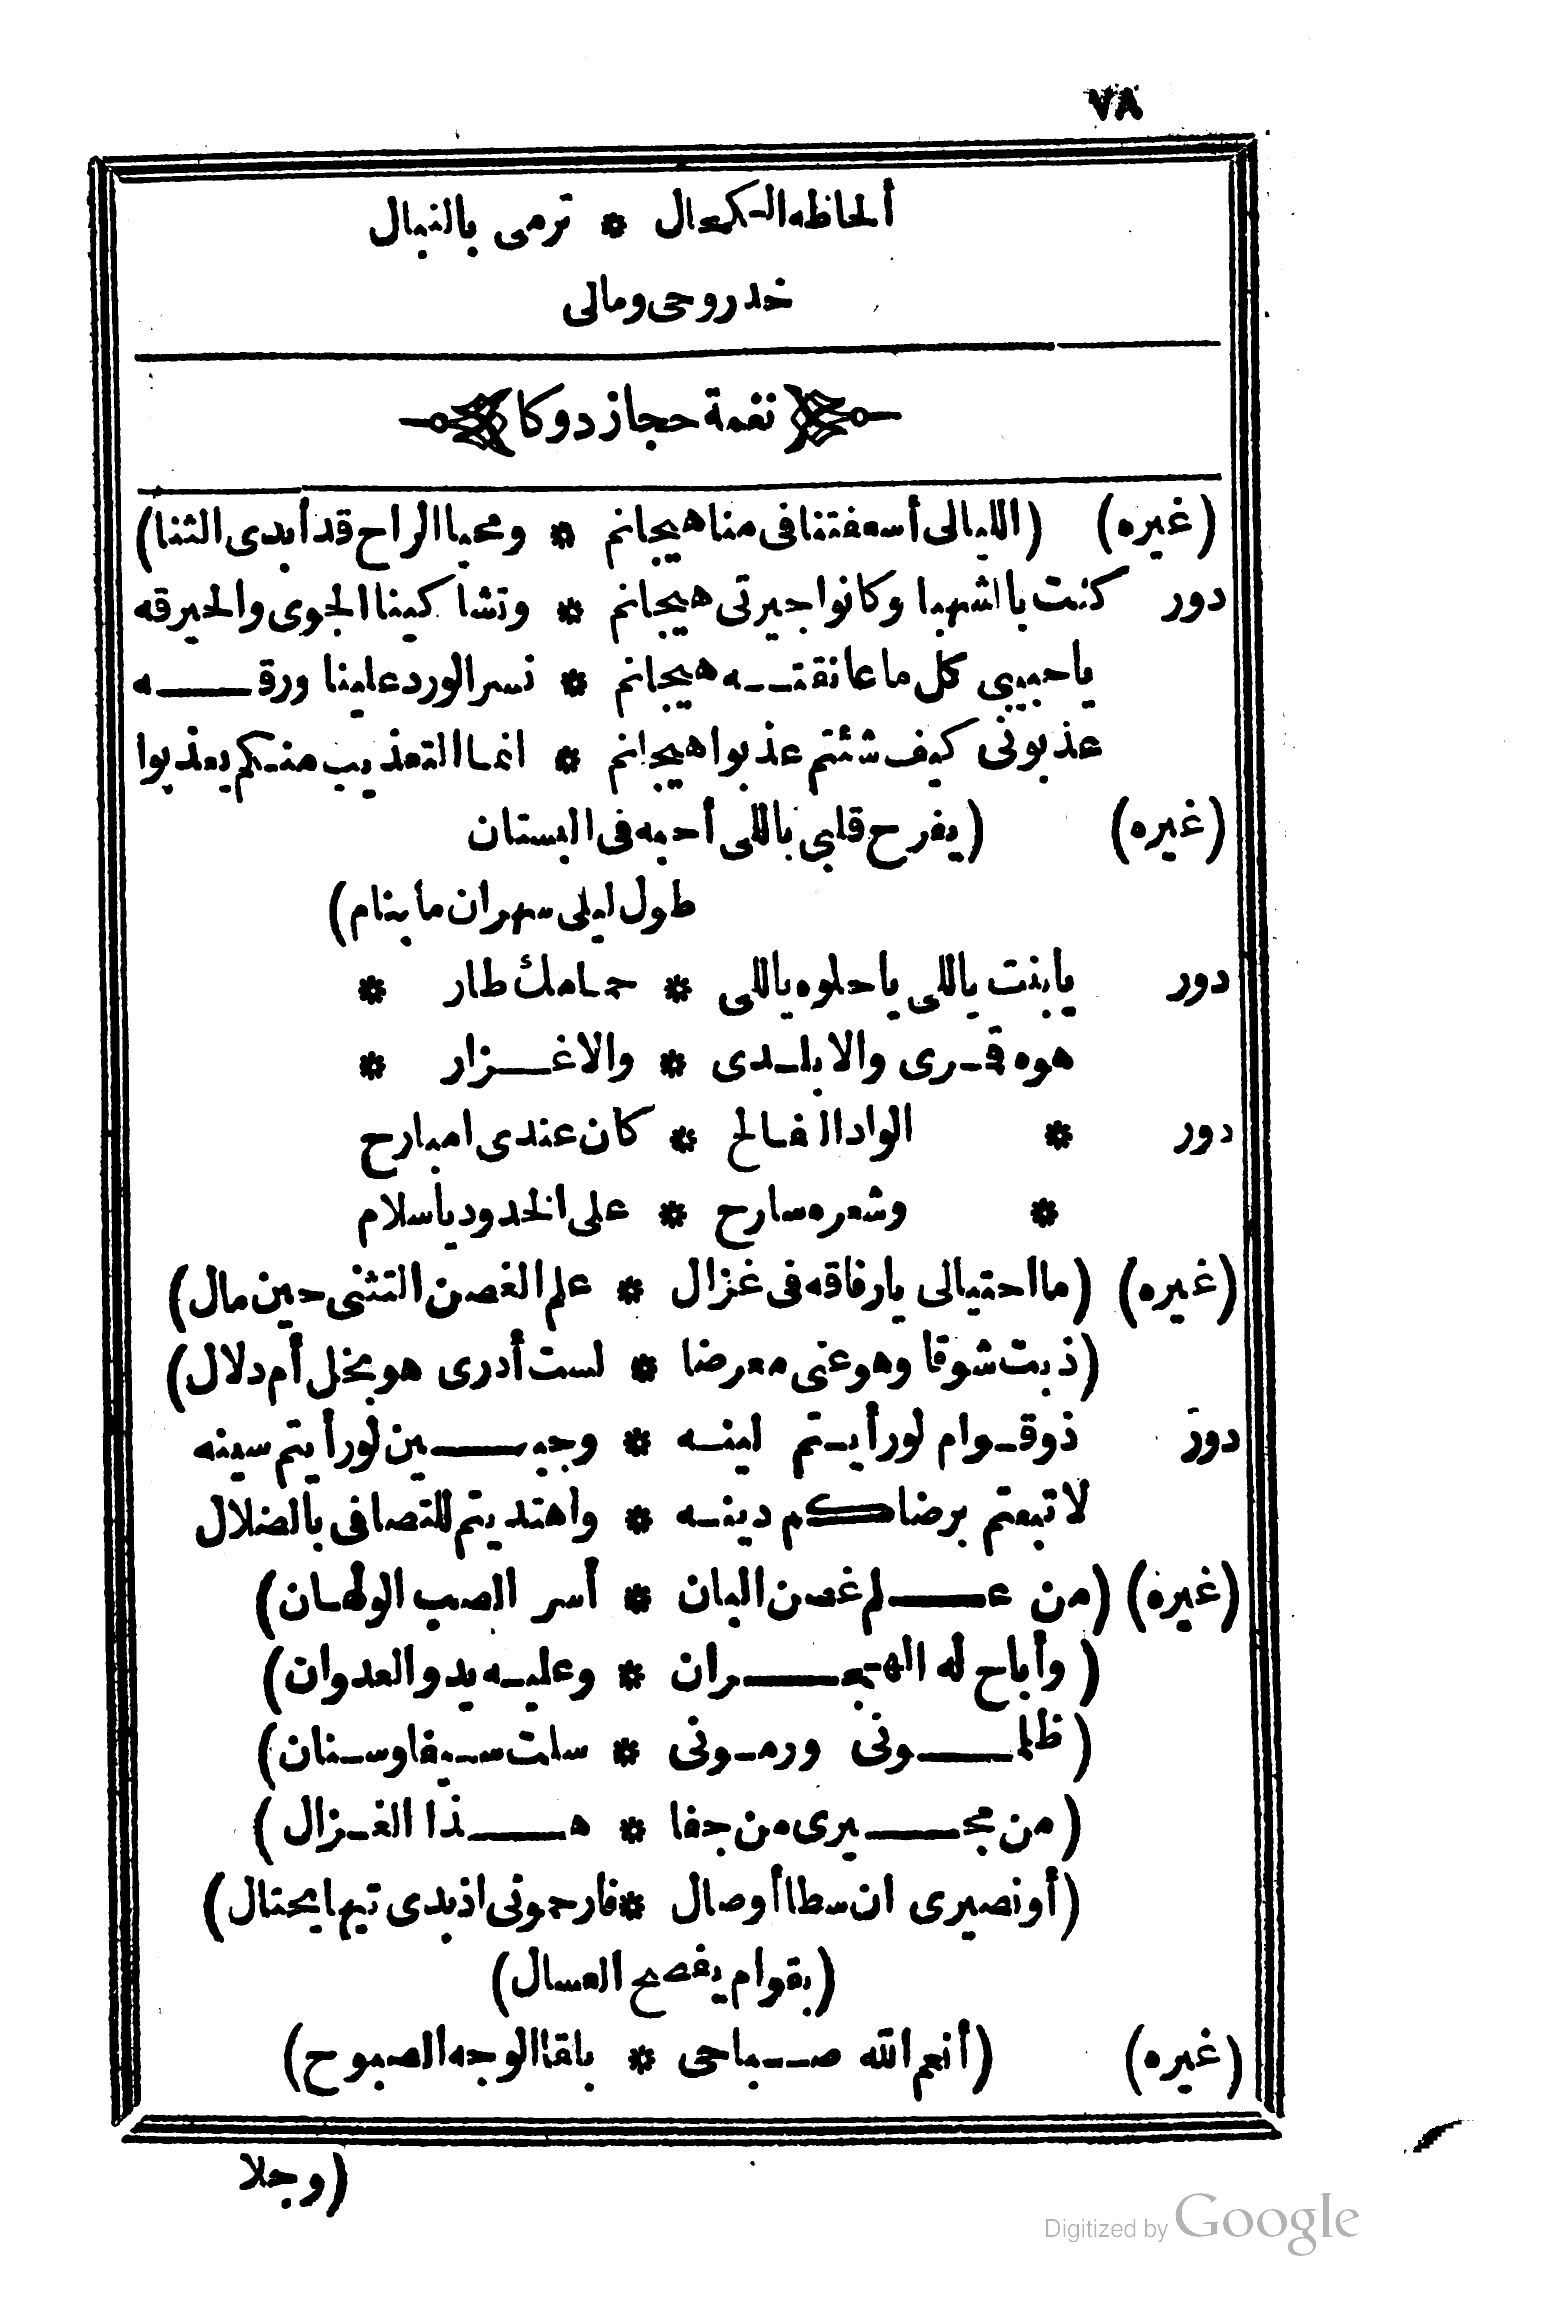 ٧٨
ألحاظه الكحال * ترمى بالنبال
خدروحى ومالى
نغمة حجاز دوكا
(غيره) (الليالى أسعفتنا فى مناهيجانم * ومحيا الراح قد أبدى الثنا)
دور كنت بالشهبا وكانوا جيرتى هيجانم * وتشاكينا الجوى والحيرقه
ياحبيبى كل ما عانقتـه هيجانم * نسر الورد علينا ورقـه
عذبونى كيف شئتم عذبوا هيجانم * انما التعذيب منكم يعذبوا
(غيره) (يفرح قلبى باللى أحبه فى البستان
طول ليلى سهران ما بنام)
دور يابنت ياللى ياحلوه ياللى * حمامك طار *
هوه قمرى والا بلـدى * والاغـزار *
دور * الواد الفالح * كان عندى امبارح
* وشعره سارح * على الخدود ياسلام
(غيره) (ما احتيالى يارفاقه فى غزال * علم الغصن التثنى حين مال)
(ذبت شوقا وهو عنى معرضا * لست أدرى هو بخل أم دلال)
دور ذوقـوام لو رأيـتم لينـه * وجبـين لو رأيتم سينه
لا تبعتم برضاكم دينـه * واهتديتم للتصافى بالضلال
(غيره) (من عـلم غصن البان * أسر الصب الولهان)
(وأباح له الهجـران * وعليـه يدو العدوان)
(ظلمـونى ورمـونى * سلت سـيفا وسـنان)
(من مجـيرى من جفا * هـذا الغـزال)
(أو نصيرى ان سطا أوصال * فارحمونى اذ بدى تيها يختال)
(بقوام يفضح العسال)
(غيره) (أنعم الله صـباحى * يا قا الوجه الصبوح)
(وجلا
Digitized by Google